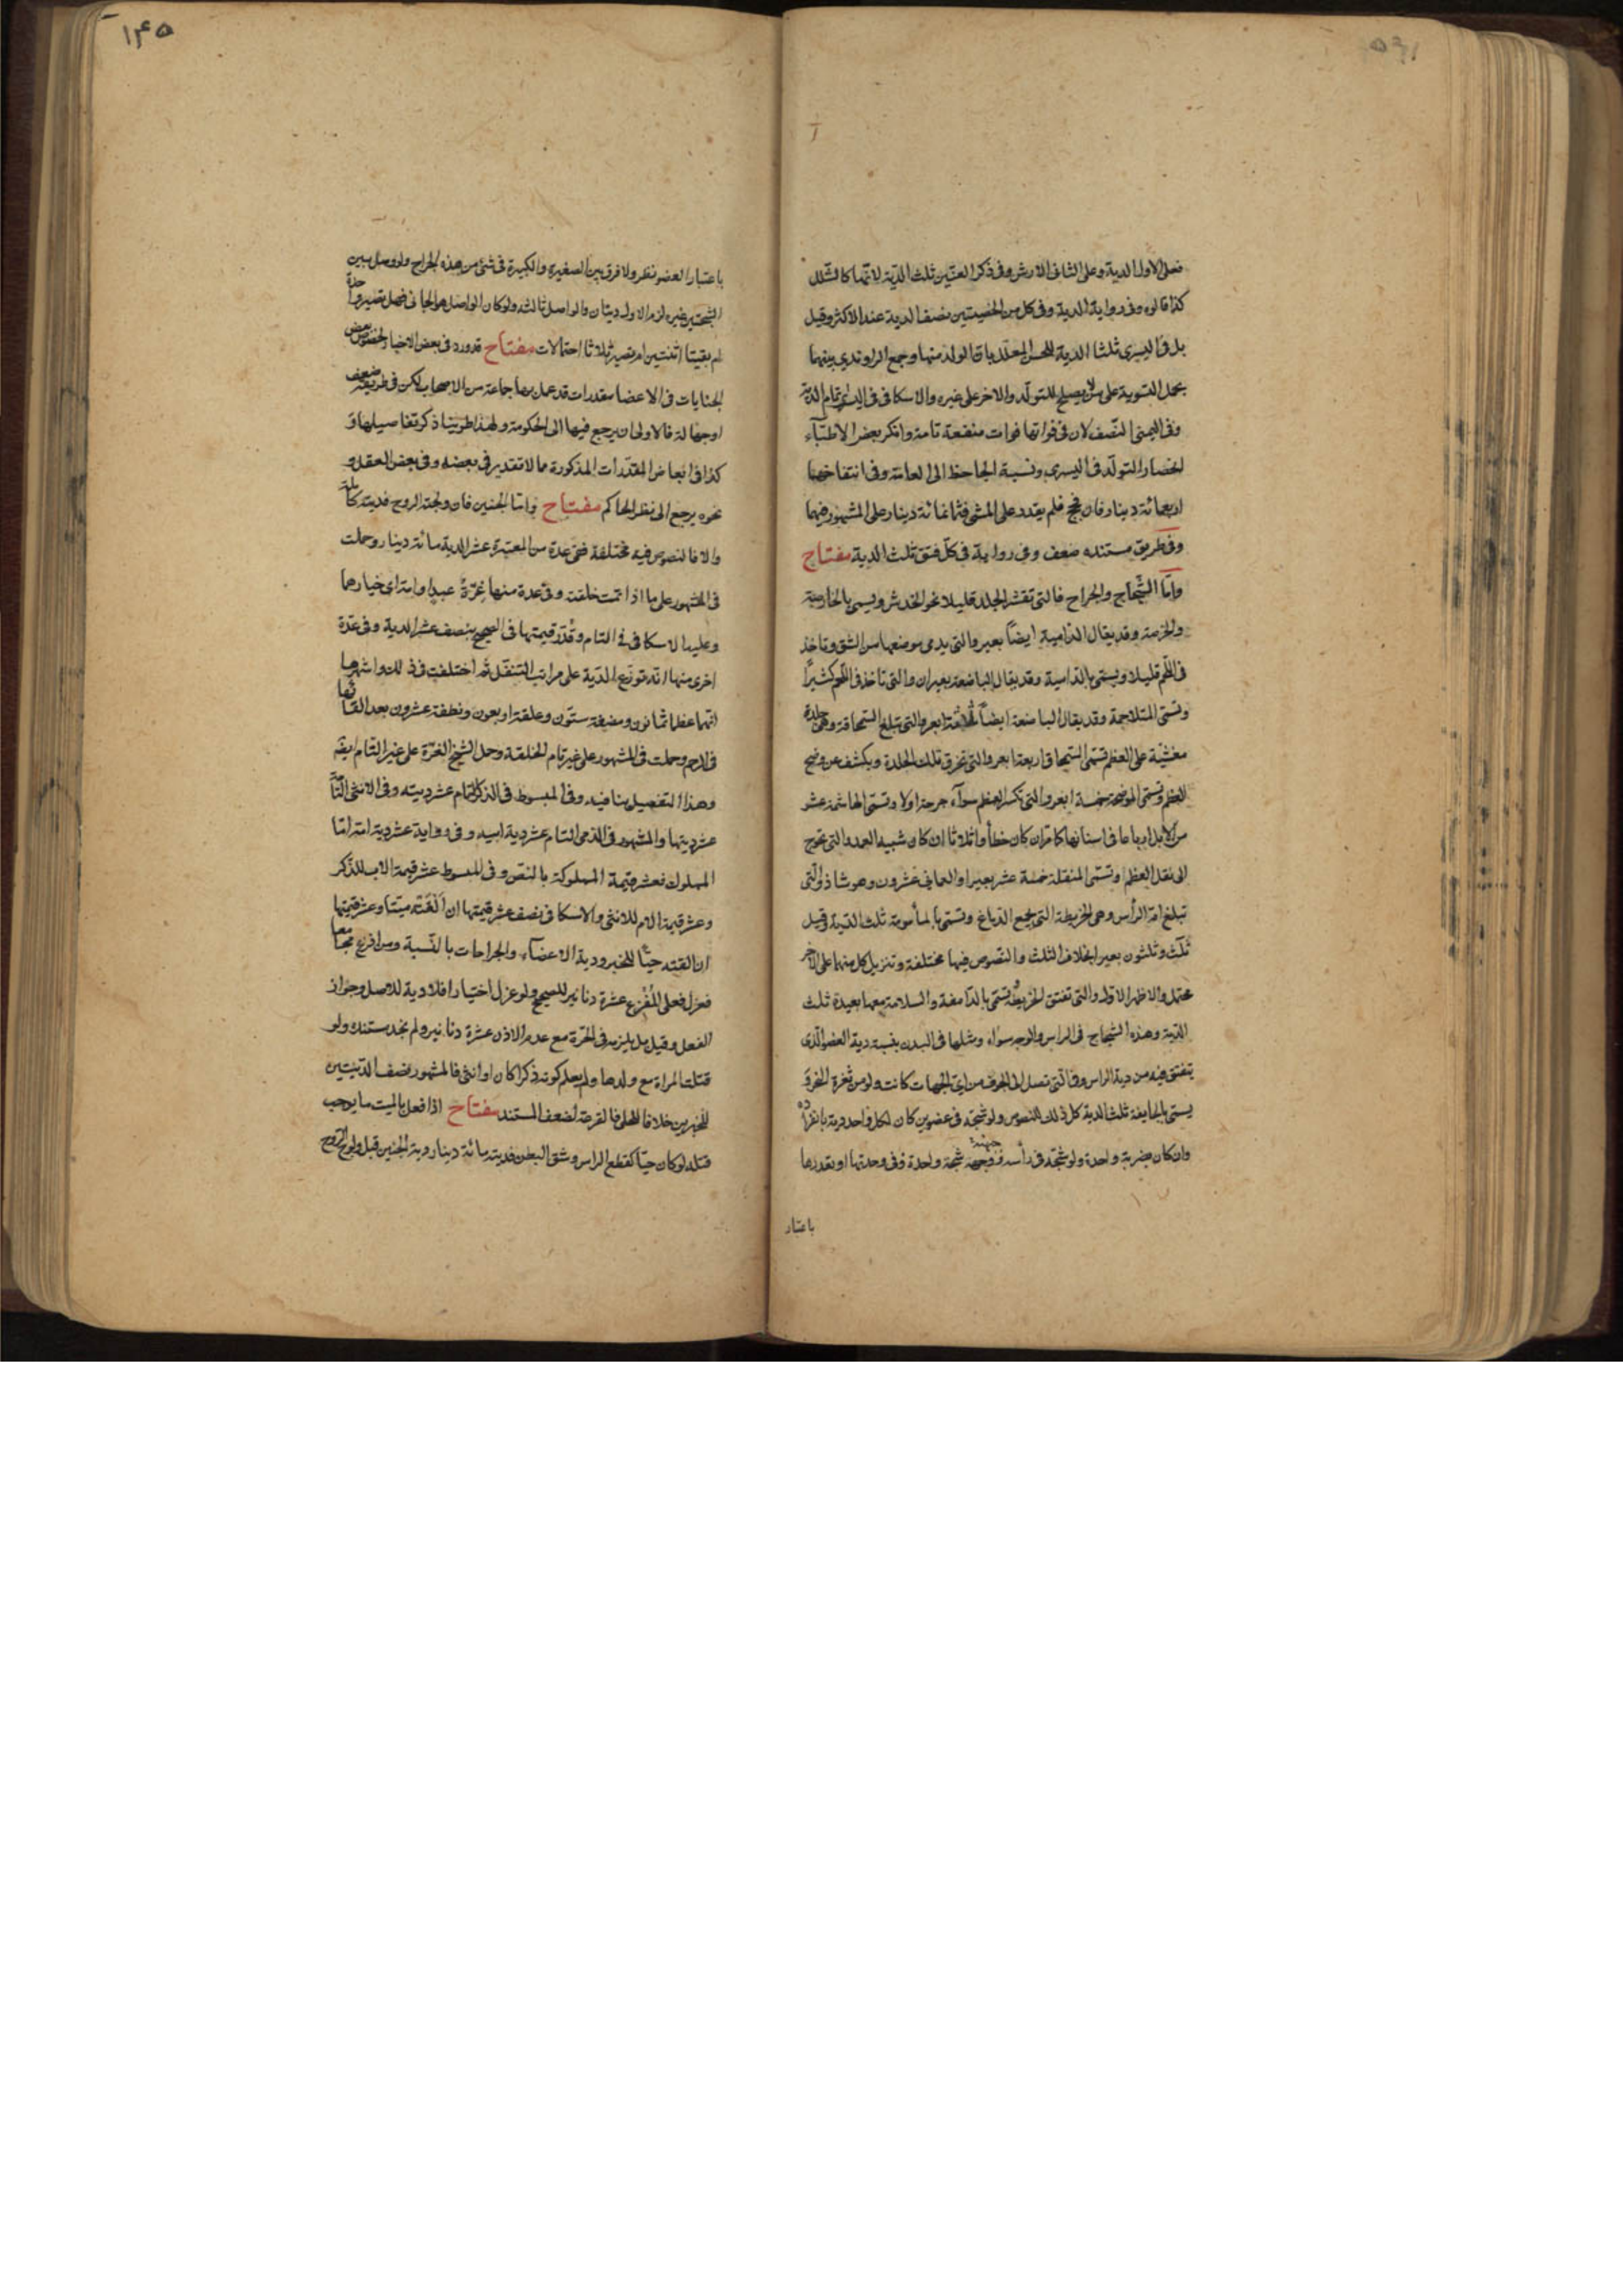 فعلی الاول الدیة وعلی الثانی الارش وفی ذکر العنین ثلث الدیة لانهما کالشلل
کذا قالوه وفی روایة الدیة وفی کل من الخصیتین نصف الدیة عند الاکثر وقیل
بل فی الیسری ثلثا الدیة للحسن المعلل بان الولد منها وجمع الراوندی بینهما
بحمل التسویة علی من لا یصلح للتولد والاخر علی غیره والاسکافی فی الیسری تمام الدیة
وفی الیمنی النصف لان فی فواتها فوات منفعة تامة وانکر بعض الاطباء
انحصار التولد فی الیسری ونسبة الجاحظ الی العامة وفی انتفاخهما
اربعمائة دینار فان فحج فلم یقدر علی المشی فثمانمائة دینار علی المشهور فیهما
وفی طریق مستنده ضعف وفی روایة فی کل فتق ثلث الدیة مفتاح
واما الشجاج والجراح فالتی تقشر الجلد قلیلا نحو الخدش ویسمی بالحارصة
والخرصة وقد یقال الدامیة ایضا بعیر والتی یدمی موضعها من الشق وتاخذ
فی اللحم قلیلا ویسمی بالدامیة وقد یقال الباضعة بعیران والتی تاخذ فی اللحم کثیرا
وتسمی المتلاحمة وقد یقال الباضعة ایضا ثلاثة ابعر والتی تبلغ السمحاقة وهی جلدة
مغشیة علی العظم تسمی السمحاق اربعة ابعر والتی تخرق تلک الجلدة ویکشف عن وضح
العظم وتسمی الموضحة خمسة ابعر والتی تکسر العظم سواء جرحته اولا وتسمی الهاشمة عشر
من الابل ارباعا فی اسنانها کما مر ان کان خطأ واثلاثا ان کان شبیه العمد والتی تحوج
الی نقل العظم وتسمی المنقلة خمسة عشر بعیرا والعمانی عشرون وهو شاذ والتی
تبلغ ام الرأس وهی الخریطة التی یجمع الدماغ وتسمی بالمأمومة ثلث الدیة وقیل
ثلث وثلثون بعیرا بخلاف الثلث والنصوص فیها مختلفة وتنزیل کل منهما علی الاخر
محتمل والاظهر الاول والتی تفتق الخریطة وتسمی بالدامغة والسلامة معها بعیدة ثلث
الدیة وهذه الشجاج فی الراس والوجه سواء ومثلها فی البدن بنسبة دیة العضو الذی
یتفق فیه من دیة الراس وفی التی تصل الی الجوف من ای الجهات کانت ولو من ثغرة النحر و
یسمی بالجایفة ثلث الدیة کل ذلک للنصوص ولو شجه فی عضوین کان لکل واحد دیة بانفراده
وان کان بضربة واحدة ولو شجه فی رأسه ووجهه جبهته شجة واحدة ففی وحدتها او تعددها
باعتبار
۱۴۵
باعتبار العضو نظر ولا فرق بین الصغیرة والکبیرة فی شئ من هذه الجراح ولو وصل بین
الشجتین غیره لزم الاول دیتان والواصل ثالثة ولو کان الواصل هو الجانی فهل تصیر واحدة
ام بقیتا اثنتین ام تصیر ثلاثا احتمالات مفتاح قد ورد فی بعض الاخبار لخصوص بعض
الجنایات فی الاعضا مقدرات قد عمل بها جماعة من الاصحاب لکن فی طریقه ضعف
او جهالة فالاولی ان یرجع فیها الی الحکومة ولهذا طوینا ذکر تفاصیلها و
کذا فی ابعاض المقدرات المذکورة مما لا تقدیر فی بعضه وفی بعض العقل و
نحوه یرجع الی نظر الحاکم مفتاح واما الجنین فان ولجته الروح فدیته کاملة
والا فالنصوص فیه مختلفة ففی عدة من المعتبرة عشر الدیة مائة دینار وحملت
فی المشهور علی ما اذا تمت خلقته وفی عدة منها غرة عبد او امة ای خیارهما
وعلیها الاسکافی فی التام وقدر قیمتها فی الصحیح بنصف عشر الدیة وفی عدة
اخری منها انه توزع الدیة علی مراتب التنقل ثم اختلفت فی ذلک واشهرها
انهما عظما ثمانون ومضغة ستون وعلقة اربعون ونطفة عشرون بعد القائها
فی الرحم وحملت فی المشهور علی غیر تام الخلقة وحمل الشیخ الغرة علی غیر التام ایضا
وهذا التفصیل ینافیه وفی المبسوط فی الذکر التام عشر دیته وفی الانثی التام
عشر دیتها والمشهور فی الذمی التام عشر دیة ابیه وفی روایة عشر دیة امه اما
المملوک فعشر قیمة المملوکة بالنص وفی المبسوط عشر قیمة الاب للذکر
وعشر قیمة الام للانثی والاسکافی نصف عشر قیمتها ان القته میتا وعشر قیمتها
ان القته حیا للخبر ودیة الاعضاء والجراحات بالنسبة ومن افزع مجامعا
فعزل فعلی المفزع عشرة دنانیر للصحیح ولو عزل اختیارا فلا دیة للاصل وجواز
الفعل وقیل بل یلزمه فی الحرة مع عدم الاذن عشرة دنانیر ولم نجد مستنده ولو
قتلت المراة مع ولدها ولم یعلم کونه ذکرا کان او انثی فالمشهور نصف الدیتین
للخبرین خلافا للحلی فالقرعة لضعف المستند مفتاح اذا فعل بالمیت ما یوجب
قتله لو کان حیا کقطع الراس وشق البطن فدیته مائة دینار دیة الجنین قبل ولوج الروح